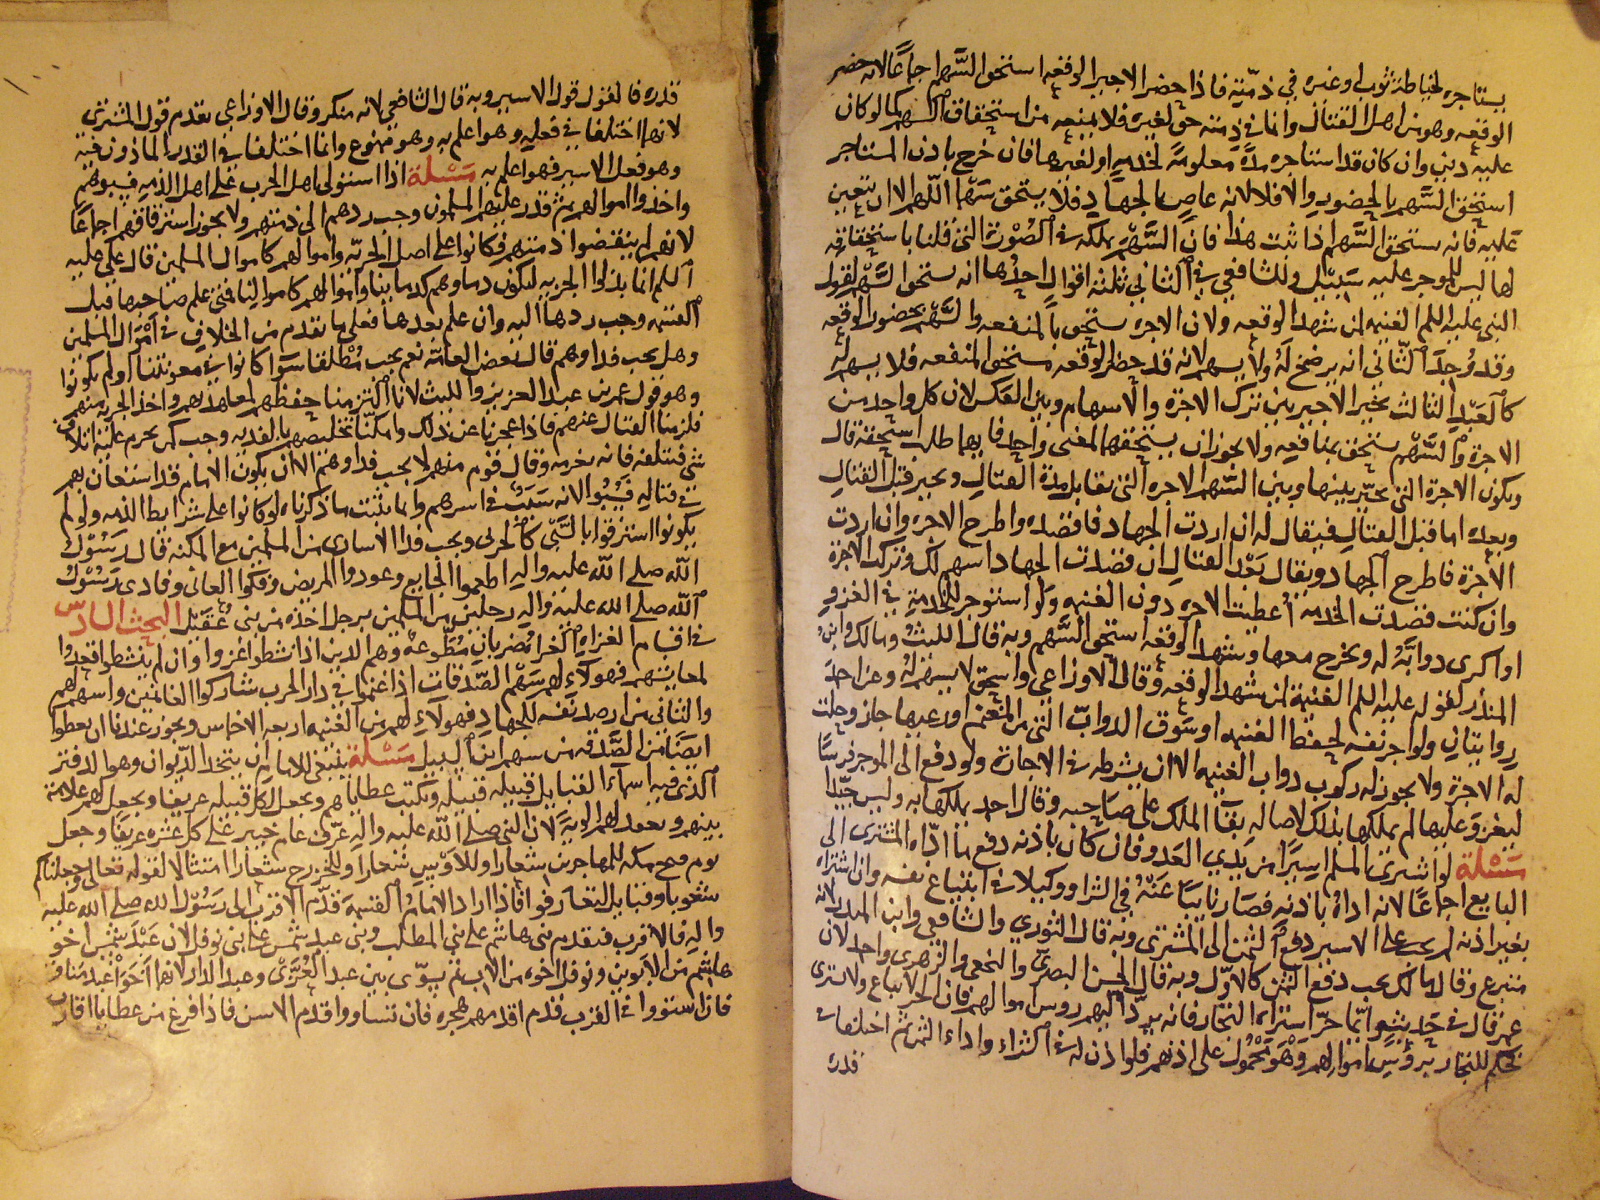 يستاجره لخياطة ثوب او غيره في ذمّته فاذا حضر الاجير الوقعه استحق السَّهم اجماعًا لانه حضر
الوقعه وهو من اهل القتال وانما في ذمته حق لغيره فلا يمنعه من استحقاق السهم كما لو كان
عليه دين وان كان قد استاجره مدة معلومة لخدمته او لغيرها فان خرج باذن المستاجر
استحق السَّهم بالحضور والا فلا لانه عاصٍ بالجهاد فلا يستحق سهما اللهم الا ان يتعين
عليه فانه يستحق السَّهم اذا ثبت هذا فان السَّهم يملكه في الصُّورة التي قلنا باستحقاقه
لها ليس للموجر عليه سَبيْل وللشافعي في الثاني ثلثة اقوال احدُها انه يستحق السَّهم لقول
النبي عليه السلم الغنيمه لمن شهد الوقعه ولان الاجره يستحق بالمنفعه والسَّهم بحضور الوقعه
وقد وُجدَ الثّاني انه يرضخ لَهُ ولا يسهم لانه قد حضر الوقعه مستحق المنفعه فلا يسهم له
كالعَبْد الثالث يخير الاجير بين ترك الاجرة والاسهام وبين العكس لان كل واحد من
الاجرة والسَّهْم يستحق بمنافعه ولا يجوز ان يستحقها لمعنى واحد فايهما طلب استحقه قال
ويكون الاجرة التي يخيّر بينها وبين السَّهم الاجره التي تقابل مدة القتال ويخير قبل القتال
وبعده اما قبل القتال فيقال له ان اردت الجهاد فاقصده واطرح الاجره وان اردت
الاجرة فاطرح الجهاد ويقال بَعْد القتال ان قصدت الجهاد اسهم لك وتترك الاجرة
وان كنت قصدت الخدمه اُعطيت الاجره دون الغنيمه ولو استوجر للخدمة في الغزو
او اكرى دوابَّهُ له ويخرج معها وشهد الوقعه استحق السَّهم وبه قال الليثُ ومالك وابن
المنذر لقوله عليه السلم الغنيمة لمن شهد الوقعه وقال الاوزاعي واسحق لا يسهم لَهُ وعن احمدَ
روايتان ولو اجر نفسه لحفظ الغنيمه او سَوق الدوابّ التي من المغنم او رعيها جاز وحلت
له الاجرة ولا يجوز له ركوب دواب الغنيمه الا ان يشرطه في الاجارة ولو دفع الى الموجر فرسًا
ليغزو عليها لم يملكها بذلك لاصاله بقآء الملك على صاحبه وقال احمد يملكها به وليس جيّدا
مَسْئلة لو اشترى المسلم اسيرًا من يَدي العَدو فان كان باذنه دفع ما ادّاه المشترى الى
البايع اجماعًا لانه اداهُ باذنه فصَار نايبًا عَنْهُ في الشرا ووكيلا في ابتياع نفسه وان اشتراه
بغير اذنه لم يجب على الاسير دفع الثمن الى المشترى وبه قال الثوري والشافعي وابن المنذر لانه
متبرع وقال مالك يجب دفع الثمن كالاوّل وبه قال الحسن البصريّ والنخعي والزهرى واحمد لان
عمر قال في حَديثهِ وايّما حرّ اشتراه التجار فانه يردّ اليهم روس اموالهم فان الحر لا يباع ولا يشترى
فحكم للتجار بروسِ اموالِهم وَهْوَ مَحْمُول على اذنهم فلو اذن له في الشراء واداء الثمن ثم اختلفا في
قدره
قدره فالقول قول الاسير وبه قال الشافعي لانه منكر وقال الاوزاعي تقدم قول المشترى
لانهما اختلفا في فعله وهو اعلم به وهو ممنوع وانما اختلفا في القدر الماذون فيه
وهو فعل الاسير فهو اعلم به مَسْئلة اذا استولى اهل الحرب على اهل الذمه فسبوهم
واخذوا اموالهم ثم قدر عليهم المسلمون وجب ردهم الى ذمتهم ولا يجوز استرقاقهم اجماعًا
لانهم لم ينقضوا ذمتهم فكانوا على اصل الحريّه واموالهم كاموال المسلمين قال علي عليه
السلم انما بذلوا الجزيه ليكون دماوهم كدمائنا واموالهم كاموالنا فمتى علم صاحبها قبل
القسمه وجب ردها اليه وان علم بعدها فعلى ما تقدم من الخلاف في اَمْوَال المسلمين
وهل يجب فداوهم قال بعض العامّه نعم يجب مُطْلقا سَوآ كانوا في معونتنا او لم يكونوا
وهو قول عمر بن عبد العزيز والليث لانا التزمنا حفظهم لمعاهدتهم واخذ الجزيه منهم
فلزمنا القتال عنهم فاذا عجزنا عن ذلك وامكننا تخليصهم بالفديه وجب كمن يحرم عليه اتلاف
شي فيتلفه فانه يغرمه وقال قوم منهم لا يجب فداوهم الا ان يكون الامام قد استعان بهم
في قتاله فسُبُوا لانه سَبَبٌ في اسرهم وانما يثبت ما ذكرناه لو كانوا على شرايط الذمه ولو لم
يكونوا استرقوا بالسَّبي كالحربى ويجب فدا الاسارى من المسلمين مع المكنه قال رَسُول
الله صلى الله عليه واله اطعموا الجايع وعودوا المريض وفكوا العانى وفادى رَسُول
الله صلى الله عليه واله رجلين من المسلمين برجل اخذه من بنى عُقَيْل البحث السادس
في اقسام الغزاه الغزاه ضربان مُطّوعة وهم الذين اذا نشطوا غزوا وان لم ينشطوا قعدُوا
لمعايشهم فهولآء لهم سَهْم الصّدقات اذا غنموا في دار الحرب شاركوا الغانمين واسهم لهم
والثانى من ارصد نَفسَه للجهاد فهولآءِ لهم من الغنيمه اربعه الاخماس ويجوز عندنا ان يعطوا
ايضًا من الصَّدقه من سهم ابن السبيل مَسْئلة ينبغي للامام ان يتخذ الدّيوان وهو الدفتر
الذى فيه اسمآءا القبايل قبيله قبيله ويكتب عطاياهم ويجعل لكل قبيله عريفا ويجعل لهم علامة
بينهم ويعقد لهم الويةً لان النبى صلى الله عليه واله عرّف عام خيبر على كل عشره عريفًا وجعل
يوم فتح مكه للمهاجرين شعارا وللاوْسِ شعاراً وللخزرج شعارًا امتثالا لقوله تعالى وجعلناكم
شعوبا وقبايل لتعارفوا فاذا اراد الامامُ القسمةَ قدّم الاقرب الى رَسُوْل الله صلى الله عليه
واله فالاقرب فيقدم بنى هاشم على بنى المطلب وبنى عبد شمس على بنى نوفل لان عَبْدَ شمس اخو
هاشم من الابوين ونوفلا اخوه من الاب ثم يسوّى بين عبد العُزّى وعبد الدار لانهما اَخَوَا عبد مناف
فان استووا في القرب قدم اقدمهم هجره فان تساووا قدم الاسن فاذا فرغ من عطايا اقارب